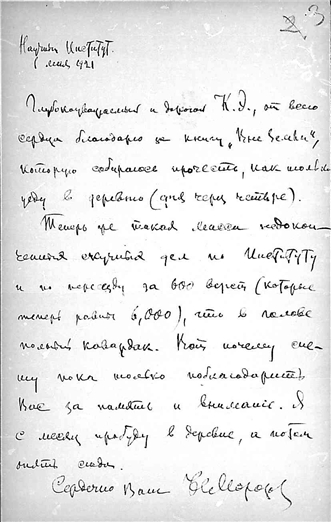 3
Научный Институт.
1 мая 1921
Глубокоуважаемый и дорогой К.Э., от всего
сердца благодарю за книгу „Вне Земли“,
которую собираюсь прочесть, как только
уеду в деревню (дня через четыре).
Теперь же такая масса недокон-
ченных скучных дел по Институту
и по переезду за 600 верст (которые
теперь равны 6,000), что в голове
полный кавардак. Вот почему спе-
шу пока только поблагодарить
Вас за память и внимание. Я
с месяц пробуду в деревне, а потом
опять сюда.
Сердечно Ваш Н. Морозов